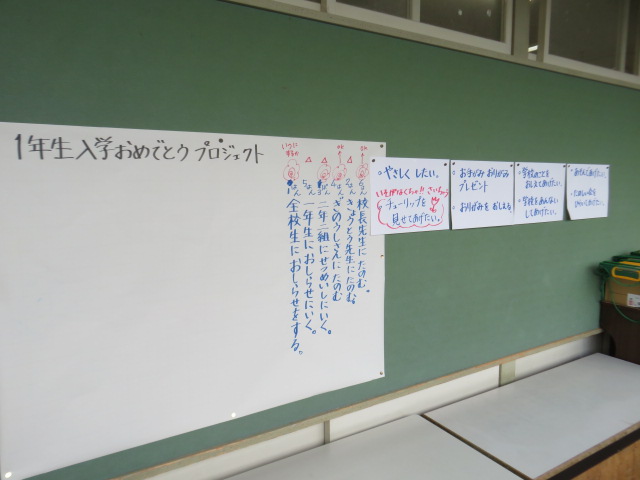 1年生入学おめでとうプロジェクト
校長先生にたのむ。
きょうとう先生にたのむ。
ぎのうしさんにたのむ
二年二組にせつめいしにいく。
一年生におしらせにいく。
全校生におしらせをする。
・やさしくしたい。
いそがなくちゃ!! さいちゅう
チューリップを
見せてあげたい。
・お手がみ おりがみ
プレゼント
・おりがみを おしえる
・学校のことを
おしえてあげたい。
・学校をあんない
してあげたい。
・あそんであげたい。